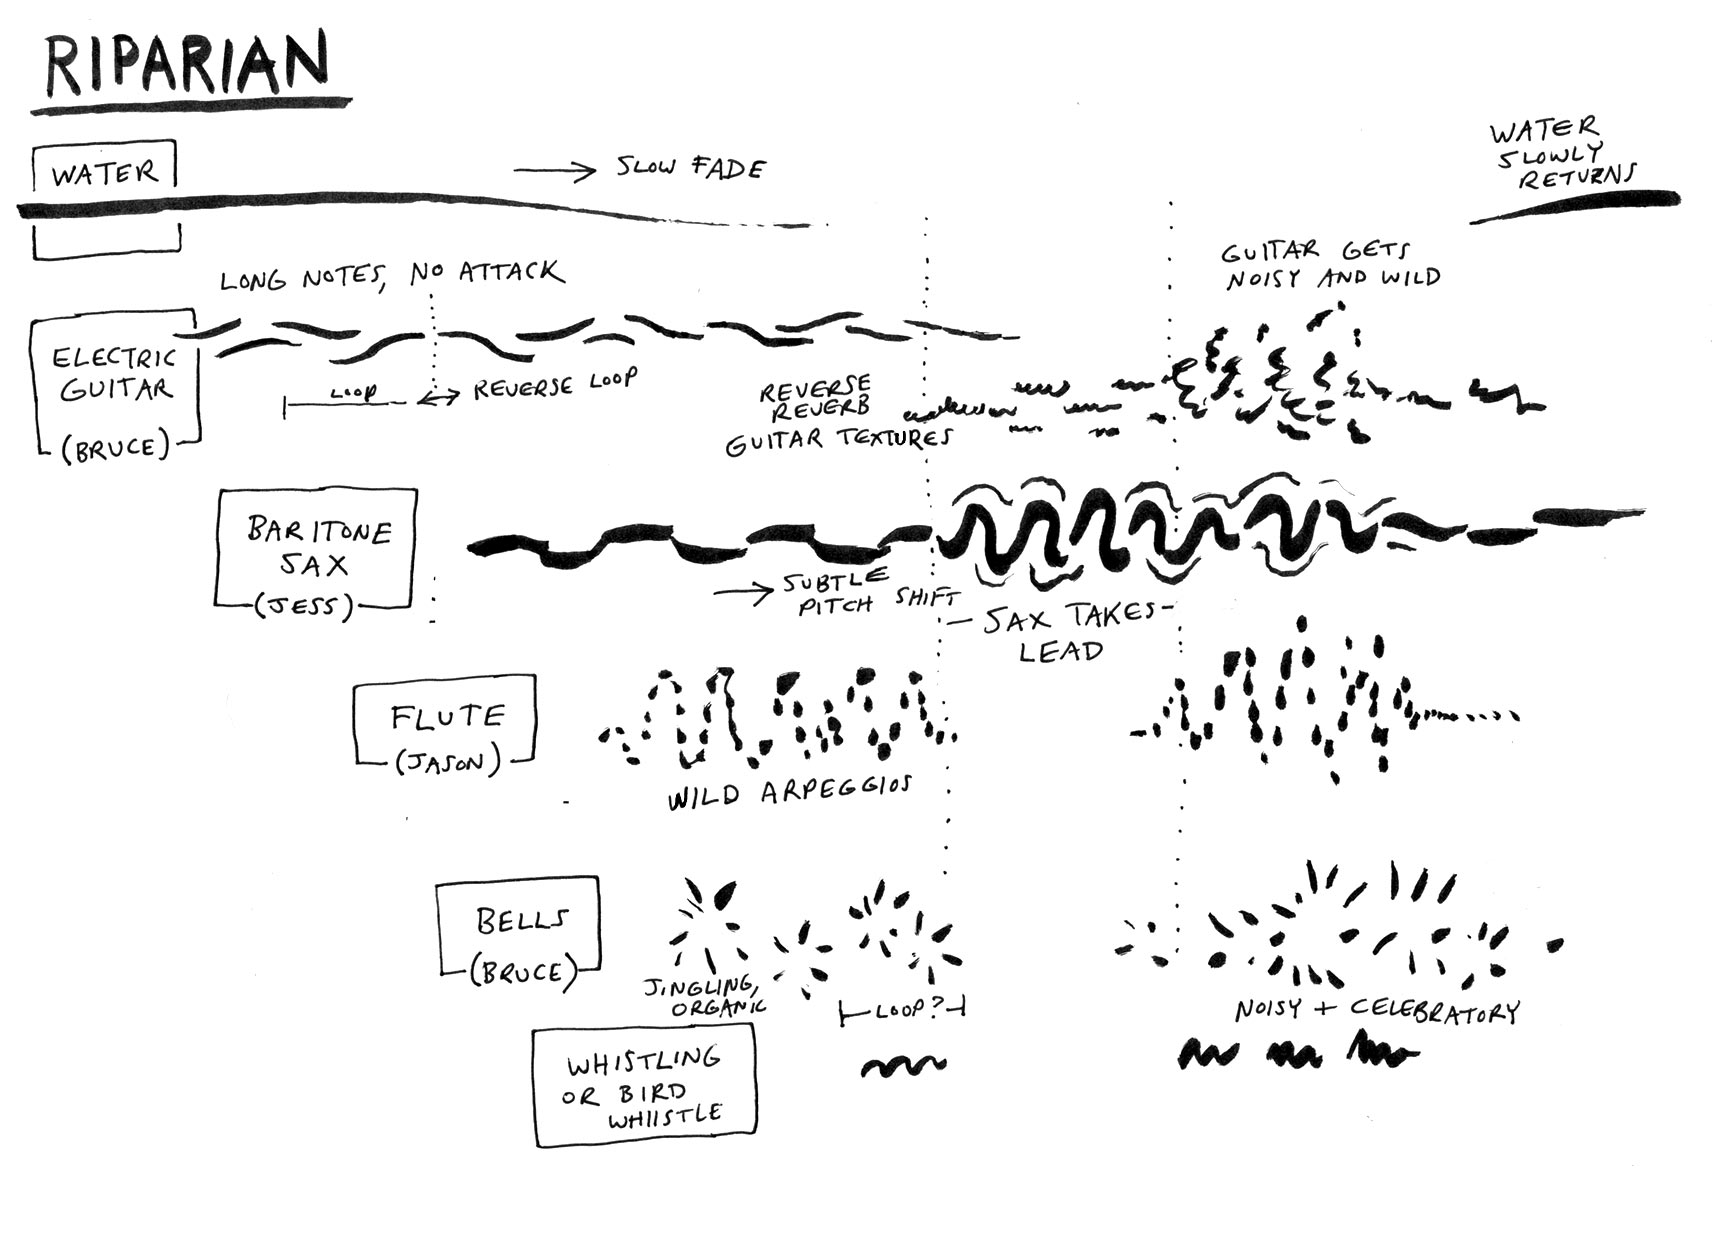 RIPARIAN
WATER
→ SLOW FADE
WATER
SLOWLY
RETURNS
LONG NOTES, NO ATTACK
GUITAR GETS
NOISY AND WILD
ELECTRIC
GUITAR
(BRUCE)
LOOP
↔ REVERSE LOOP
REVERSE
REVERB
GUITAR TEXTURES
BARITONE
SAX
(JESS)
→ SUBTLE
PITCH SHIFT
– SAX TAKES –
LEAD
FLUTE
(JASON)
WILD ARPEGGIOS
BELLS
(BRUCE)
JINGLING,
ORGANIC
LOOP?
NOISY + CELEBRATORY
WHISTLING
OR BIRD
WHIISTLE